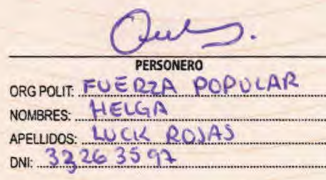 PERSONERO
ORG POLIT: FUERZA POPULAR
NOMBRES: HELGA
APELLIDOS: LUCK ROJAS
DNI: 33263597